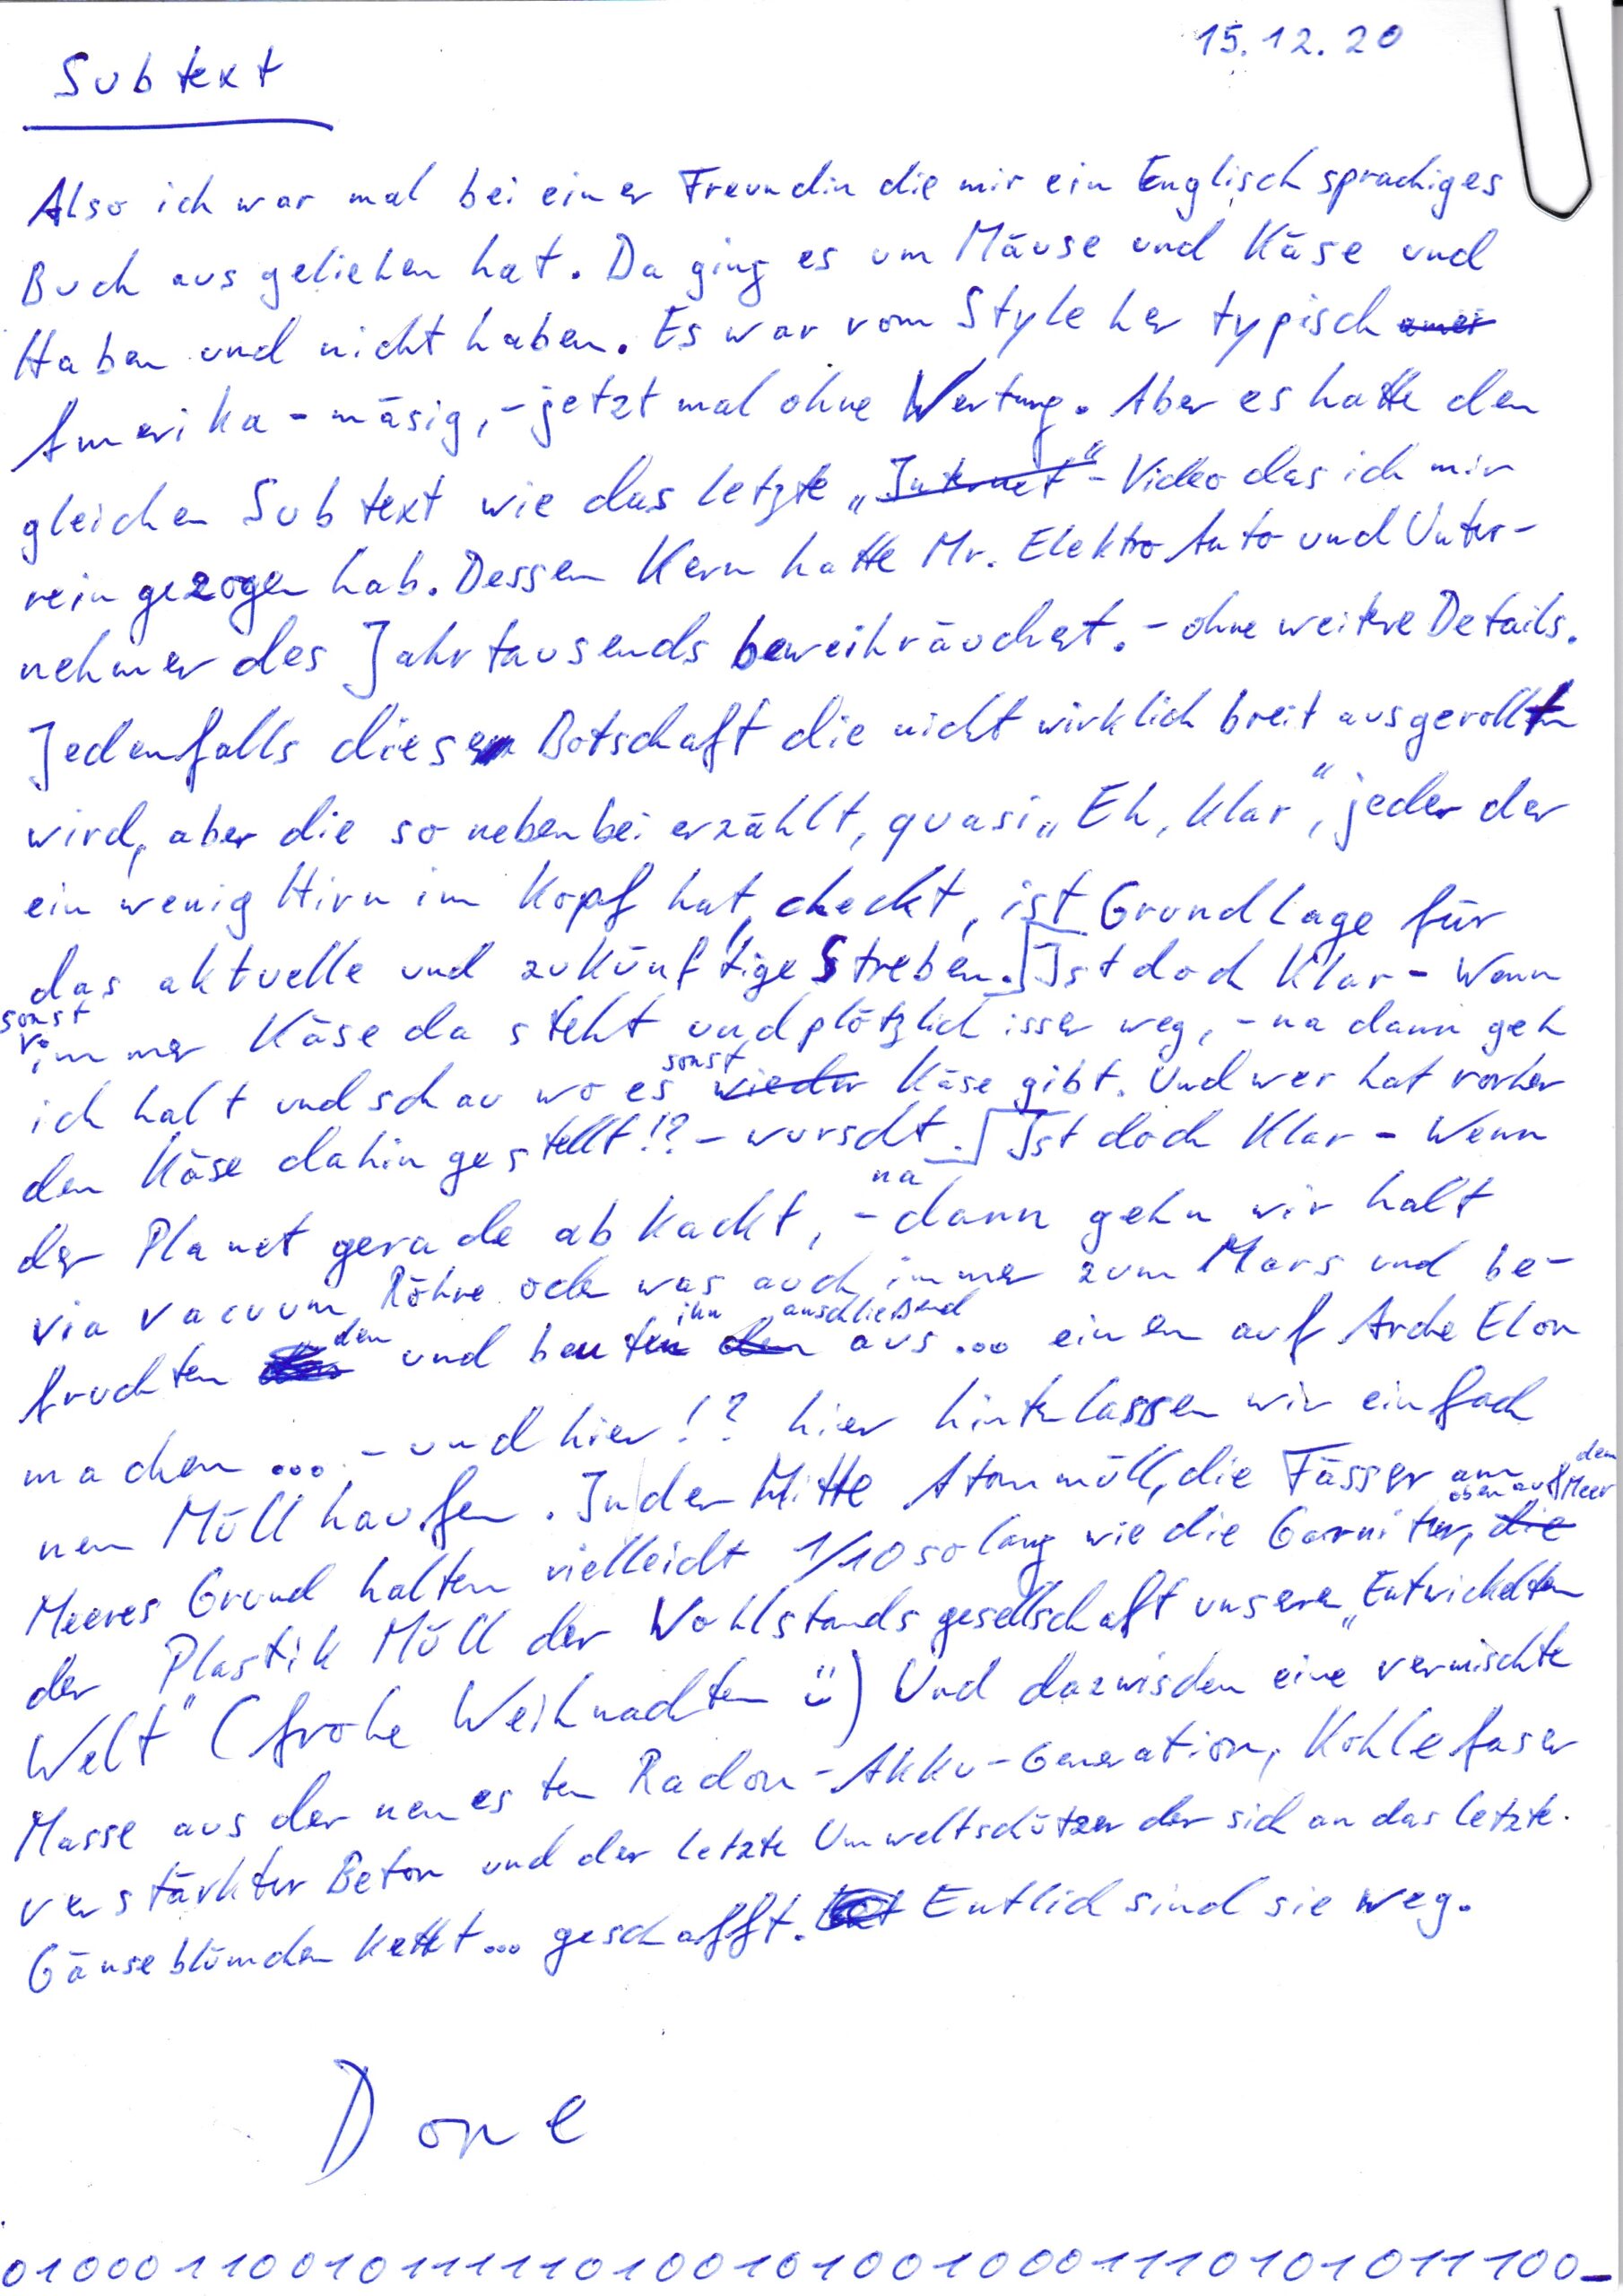 15.12.20
Subtext
Also ich war mal bei einer Freundin die mir ein Englisch sprachiges
Buch ausgeliehen hat. Da ging es um Mäuse und Käse und
Haben und nicht haben. Es war vom Style her typisch
Amerika-mäsig, - jetzt mal ohne Wertung. Aber es hatte den
gleichen Subtext wie das letzte „Internet“-Video das ich mir
reingezogen hab. Dessen Kern hatte Mr. Elektro Auto und Unter-
nehmer des Jahrtausends beweihräuchert. - ohne weitere Details.
Jedenfalls diese Botschaft die nicht wirklich breit ausgerollt
wird, aber die so nebenbei erzählt, quasi „Eh, klar“, jeder der
ein wenig Hirn im Kopf hat, checkt, ist Grundlage für
das aktuelle und zukünftige Streben. Ist doch Klar - Wenn
sonst
immer Käse da steht und plötzlich isser weg, - na dann geh
sonst
ich halt und schau wo es wieder Käse gibt. Und wer hat vorher
den Käse dahin gestellt!? - wurscht. Ist doch Klar - Wenn
na
der Planet gerade abkackt, - dann gehn wir halt
via vacuum Röhre oder was auch immer zum Mars und be-
den ihn anschließend
fruchten und beuten den aus... einen auf Arche Elon
machen ... - und hier!? hier hinterlassen wir einfach
nen Müllhaufen. In der Mitte Atommüll, die Fässer am
oben auf dem Meer
Meeres Grund halten vielleicht 1/10 so lang wie die Garnitur, die
der Plastik Müll der Wohlstandsgesellschaft unserer „Entwickelten
Welt“ (frohe Weihnachten ü) Und dazwischen eine vermischte
Masse aus der neuesten Radon-Akku-Generation, Kohlefaser
verstärkter Beton und der letzte Umweltschützer der sich an das letzte
Gänseblümchen kettet... geschafft. Entlich sind sie weg.
Done
010001100101111101001010010001110101011100_